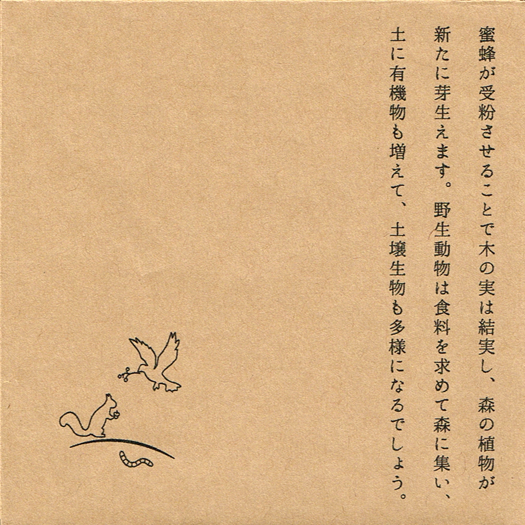 蜜蜂が受粉させることで木の実は結実し、森の植物が
新たに芽生えます。野生動物は食料を求めて森に集い、
土に有機物も増えて、土壌生物も多様になるでしょう。